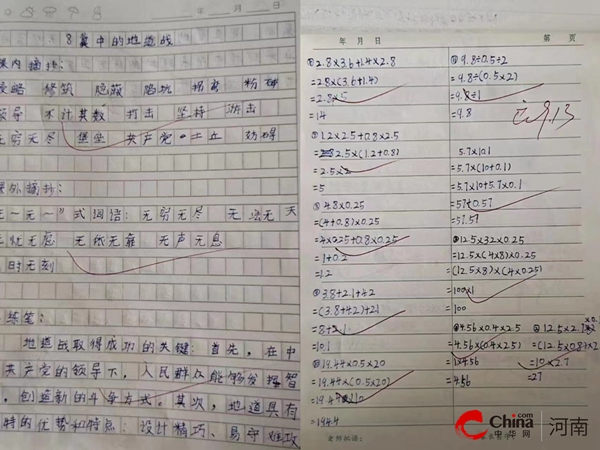 8冀中的地道战
课内摘抄:
侵略 修筑 隐蔽 陷坑 拐弯 粉碎
领导 不计其数 打击 坚持 游击
无穷无尽 堡垒 共产党 妨碍
课外摘抄:
无～无～"式词语:无穷无尽 无法无天
无忧无虑 无声无息
时无刻
练笔:
地道战取得成功的关键:首先,在中
共产党的领导下,人民群众能够发挥智
,创造新的斗争方式。其次,地道具有
特的优势和特点:设计精巧、易守难攻
年 月 日
第 页
①2.8×3.6+1.4×2.8
=2.8×(3.6+1.4)
=2.8×5
=14
②1.2×2.5+0.8×2.5
=2.5×(1.2+0.8)
=2.5×2
=5
⑤4.8×0.25
=(4+0.8)×0.25
=4×0.25+0.8×0.25
=1+0.2
=1.2
3.8+2.1+4.2
=(3.8+4.2)+2.1
=8+2.1
=10.1
19.44×0.5×20
=19.44×(0.5×20)
=194.4
9.8÷0.5÷2
=9.8÷(0.5×2)
=9.8÷1
=9.8
9.13
5.7×10.1
=5.7×(10+0.1)
=5.7×10+5.7×0.1
=57+0.57
=57.57
12.5×32×0.25
=12.5×(4×8)×0.25
=(12.5×8)×(4×0.25)
=100×1
=100
4.56×0.4×2.5
=4.56×(0.4×2.5)
=1×4.56
=4.56
=10×2.7
=27
老师批语:
China.com
中华网
河南